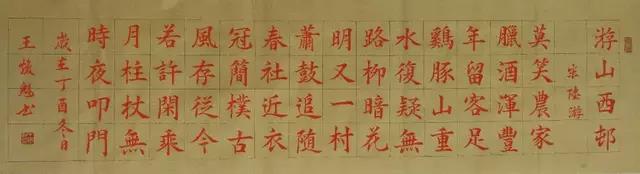 游山西邨
宋陸游
莫笑農家
臘酒渾豐
年留客足
鷄豚山重
水復疑無
路柳暗花
明又一村
蕭鼓追随
春社近衣
冠簡樸古
風存從今
若許閑乘
月柱杖無
時夜叩門
歲在丁酉冬日
王 魁书